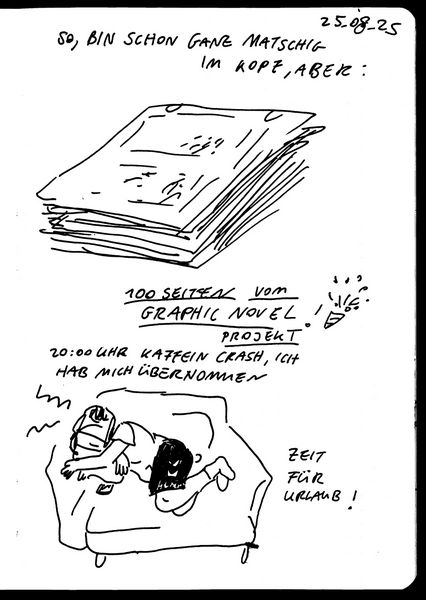 25_08_25
SO, BIN SCHON GANZ MATSCHIG
IM KOPF, ABER:
100 SEITEN VOM
GRAPHIC NOVEL
PROJEKT!
20:00 UHR KAFFEIN CRASH, ICH
HAB MICH ÜBERNOMMEN
ZEIT
FÜR
URLAUB!